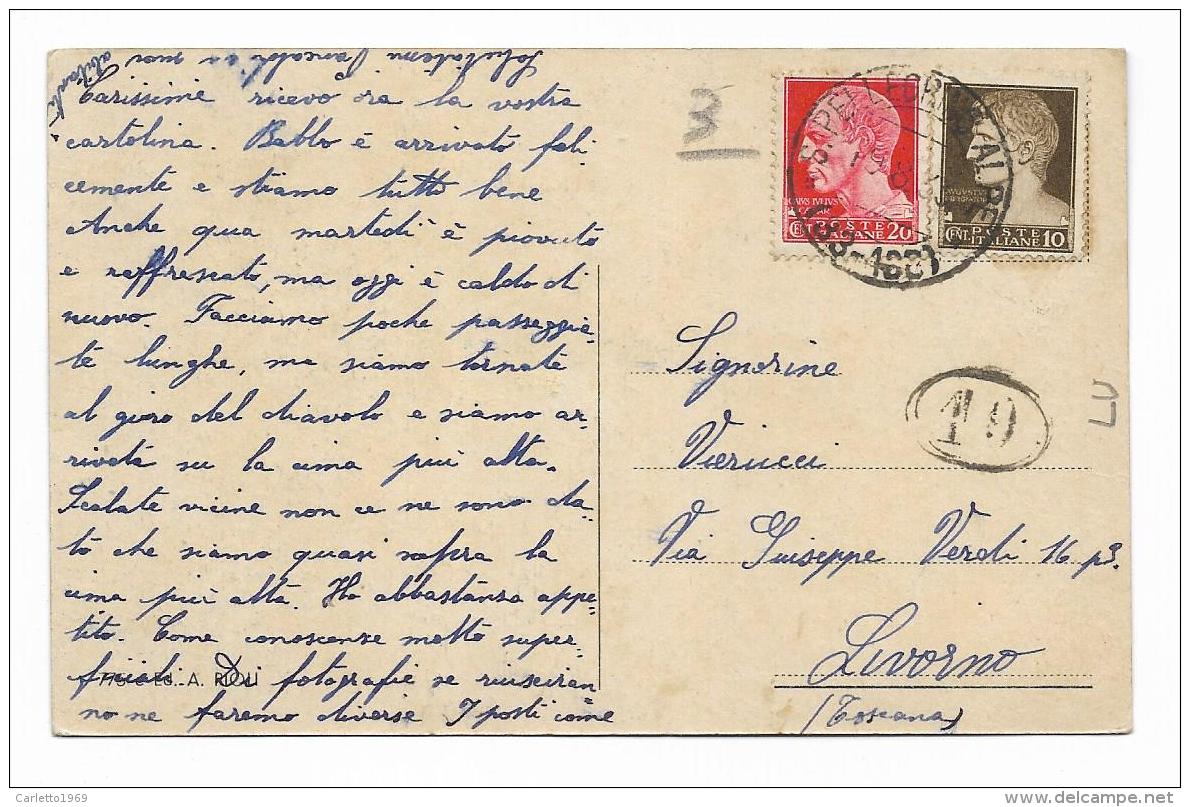 Carissime ricevo ora la vostra
cartolina. Babbo è arrivato feli-
cemente e stiamo tutti bene
Anche qua martedì è piovuto
e raffrescato, ma oggi è caldo di
nuovo. Facciamo poche passeggia-
te lunghe, ma siamo tornate
al giro del diavolo e siamo ar-
rivate su la cima più alta.
Scalate vicine non ce ne sono da-
to che siamo quasi sopra la
cima più alta. Ho abbastanza appe-
tito. Come conoscenze molto super-
ficiali. Di fotografie se riusciran
no ne faremo diverse I posti come
abitanti
A. RIOLI
3
POSTE
ITALIANE 20
CENT.
POSTE
ITALIANE 10
CENT.
S. PELLEGRINO
Signorine
Vierucci
Via Giuseppe Verdi 16 p3.
Livorno
(Toscana)
19
LU
Carletto1969
delcampe.net